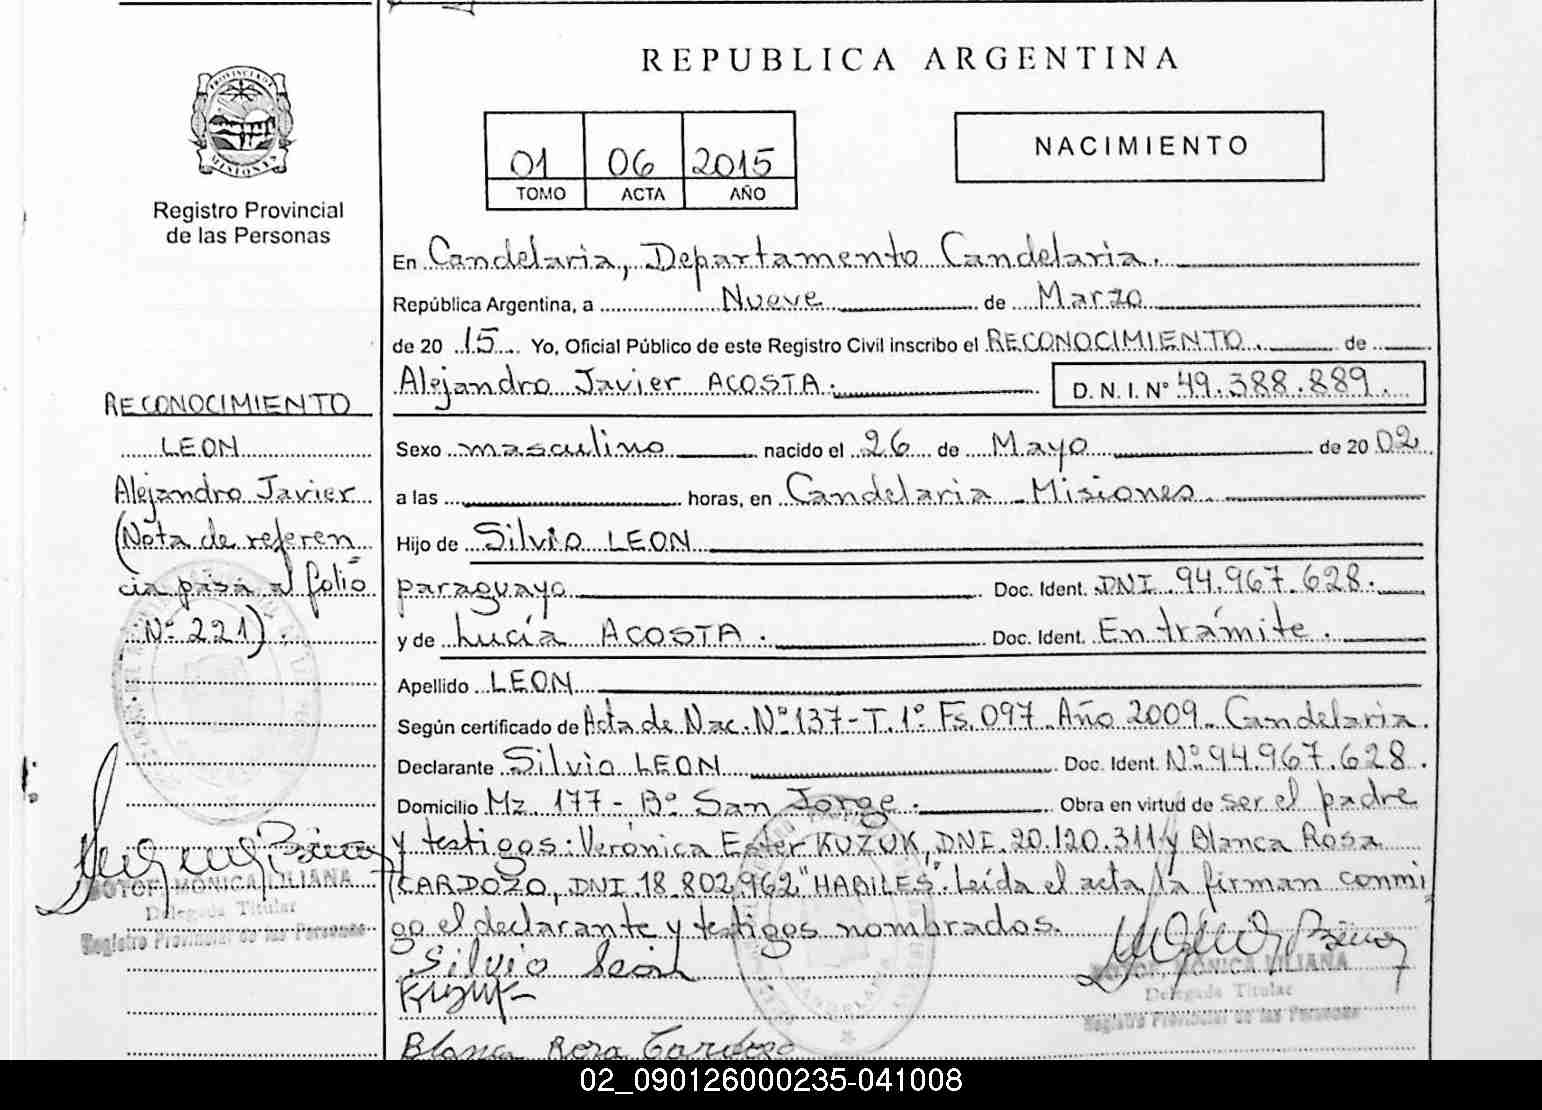 REPUBLICA ARGENTINA
PROVINCIA DE
MISIONES
Registro Provincial
de las Personas
01 06 2015
TOMO ACTA AÑO
NACIMIENTO
En Candelaria, Departamento Candelaria.
República Argentina, a Nueve de Marzo
de 20 15 Yo, Oficial Público de este Registro Civil inscribo el RECONOCIMIENTO. de
Alejandro Javier ACOSTA. D. N. I. Nº 49.388.889.
Sexo masculino nacido el 26 de Mayo de 20 02
a las horas, en Candelaria - Misiones.
Hijo de Silvio LEON
paraguayo Doc. Ident. DNI 94.967.628.
y de Lucía ACOSTA. Doc. Ident. En trámite.
Apellido LEON
Según certificado de Acta de Nac. Nº 137 - T. 1º Fs. 097 Año 2009 - Candelaria.
Declarante Silvio LEON Doc. Ident. Nº 94.967.628.
Domicilio Mz. 177 - Bº San Jorge. Obra en virtud de ser el padre
y testigos: Verónica Ester KUZUK, DNI. 20.120.311 y Blanca Rosa
CARDOZO, DNI 18.802.962 "HABILES". Leída el acta, la firman conmi
go el declarante y testigos nombrados.
Silvio León
Kuzuk
Blanca Rosa Cardozo
BOTOF, MONICA LILIANA
Delegada Titular
Registro Provincial de las Personas
RECONOCIMIENTO
LEON
Alejandro Javier
(Nota de referen
cia pasa al folio
Nº 221).
BOTOF, MONICA LILIANA
Delegada Titular
Registro Provincial de las Personas
02_090126000235-041008